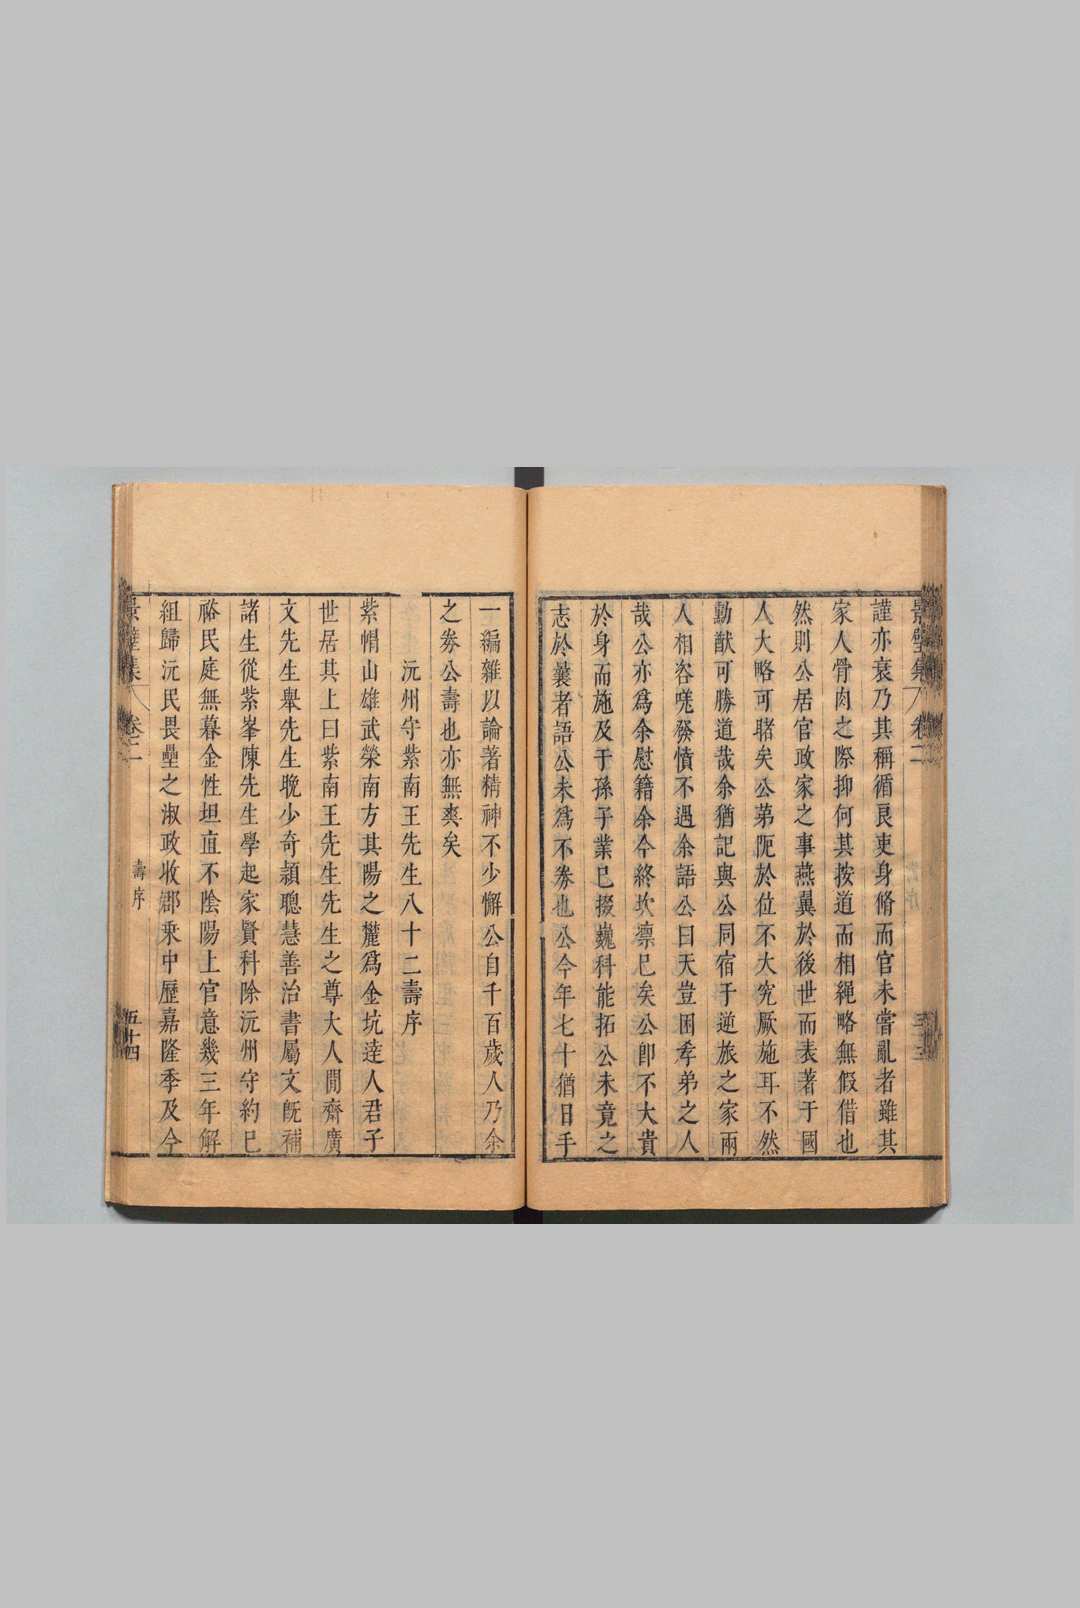 景璧集 卷二
謹亦衰乃其稱循良吏身脩而官未嘗亂者雖其
家人骨肉之際抑何其按道而相繩略無假借也
然則公居官政家之事燕翼於後世而表著于國
人大略可睹矣公弟阨於位不大究厥施耳不然
勳猷可勝道哉余猶記與公同宿于逆旅之家兩
人相咨嗟發憤不遇余語公曰天豈困孝弟之人
哉公亦為余慰籍余今終坎凜已矣公卽不大貴
於身而施及于孫子業已掇巍科能拓公未竟之
志於曩者語公未為不券也公今年七十猶日手
一編雜以論著精神不少懈公自千百歲人乃余
之券公壽也亦無爽矣
沅州守紫南王先生八十二壽序
紫帽山雄武榮南方其陽之麓為金坑逹人君子
世居其上曰紫南王先生先生之尊大人閒齋廣
文先生舉先生晚少奇穎聰慧善治書屬文旣補
諸生從紫峯陳先生學起家賢科除沅州守約己
裕民庭無暮金性坦直不陰陽上官意幾三年解
組歸沅民畏壘之淑政收郡乘中歷嘉隆季及今
景璧集 卷二 壽序 五十四